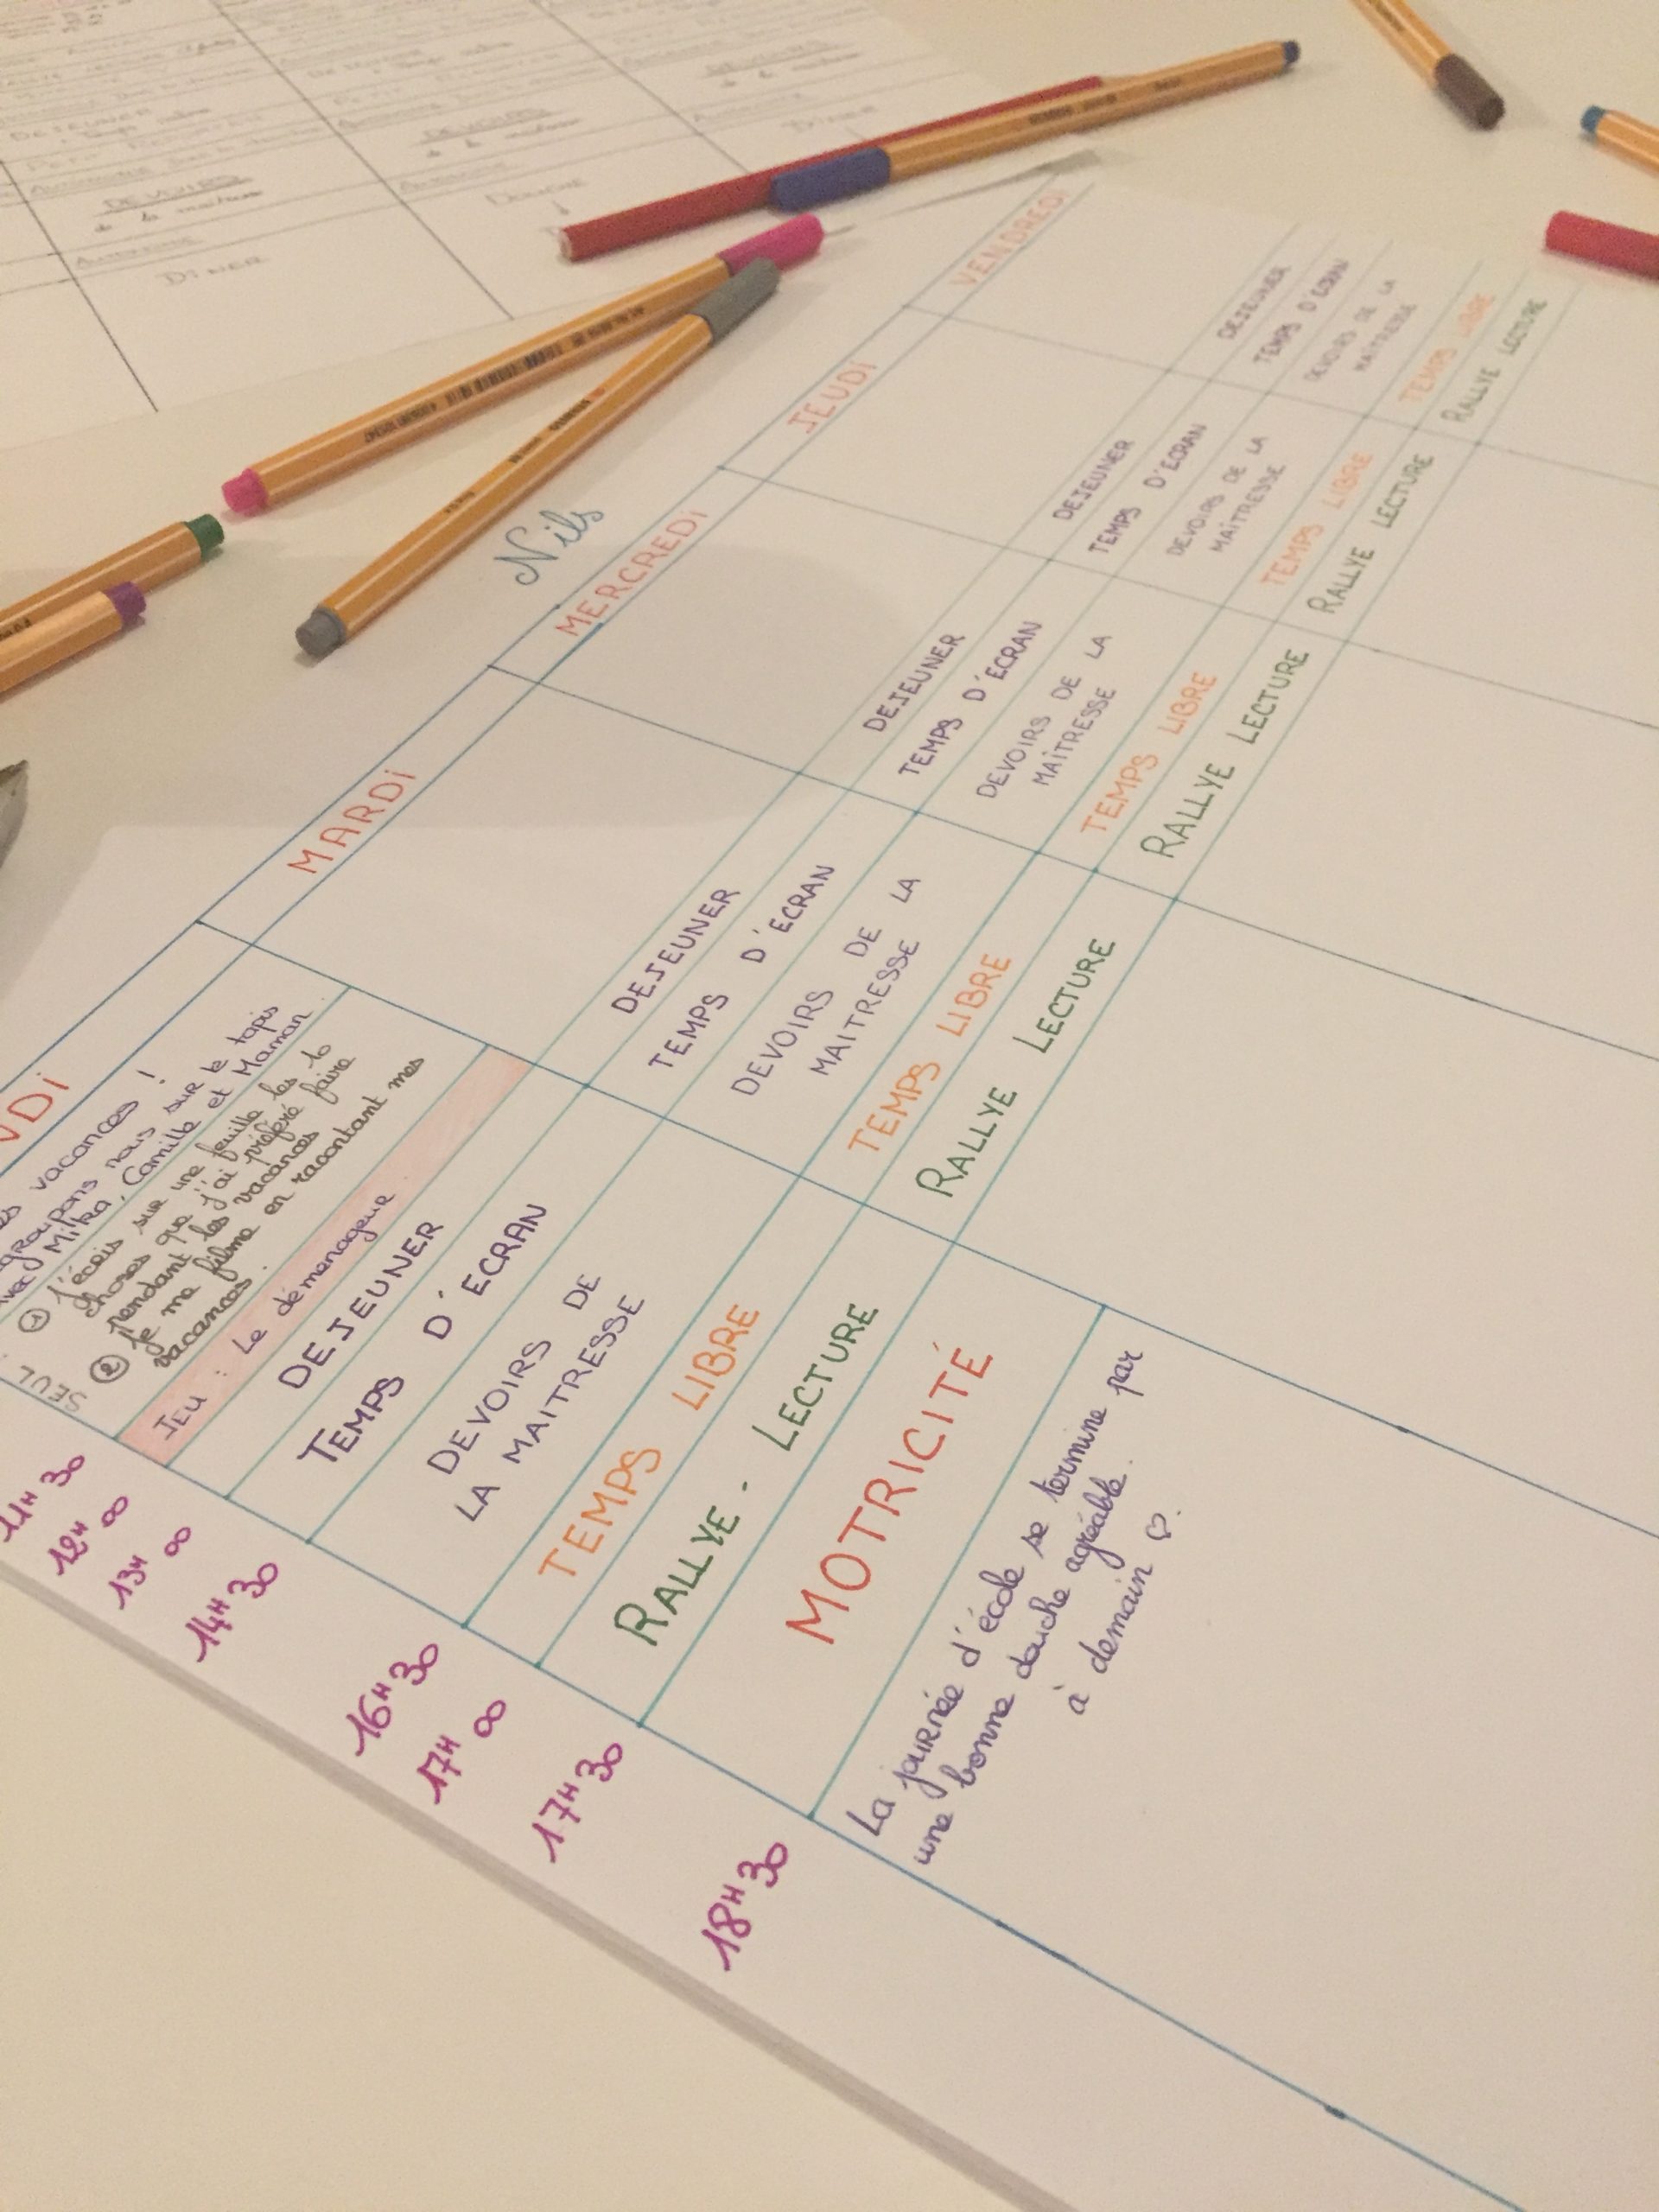 Nils
VENDREDI
JEUDI
MERCREDI
MARDI
NDI
vacances !
groupons nous sur le tapis
avec Mitka, Camille et Maman.
SEUL
① J'écris sur une feuille les 10
choses que j'ai préféré faire
pendant les vacances
② Je me filme en racontant mes
vacances.
JEU : Le démenageur
DEJEUNER
TEMPS D'ECRAN
DEVOIRS DE
LA MAITRESSE
TEMPS LIBRE
RALLYE - LECTURE
MOTRICITÉ
La journée d'école se termine par
une bonne douche agréable.
à demain ♡.
DEJEUNER
TEMPS D'ECRAN
DEVOIRS DE LA
MAITRESSE
TEMPS LIBRE
RALLYE LECTURE
DEJEUNER
TEMPS D'ECRAN
DEVOIRS DE LA
MAITRESSE
TEMPS LIBRE
RALLYE LECTURE
DEJEUNER
TEMPS D'ECRAN
DEVOIRS DE LA
MAITRESSE
TEMPS LIBRE
RALLYE LECTURE
DEJEUNER
TEMPS D'ECRAN
DEVOIRS DE LA
MAITRESSE
TEMPS LIBRE
RALLYE LECTURE
11H30
12H00
13H00
14H30
16H30
17H00
17H30
18H30
DEJEUNER
DEVOIRS
DINER
DEVOIRS
DOUCHE
DEVOIRS
DINER